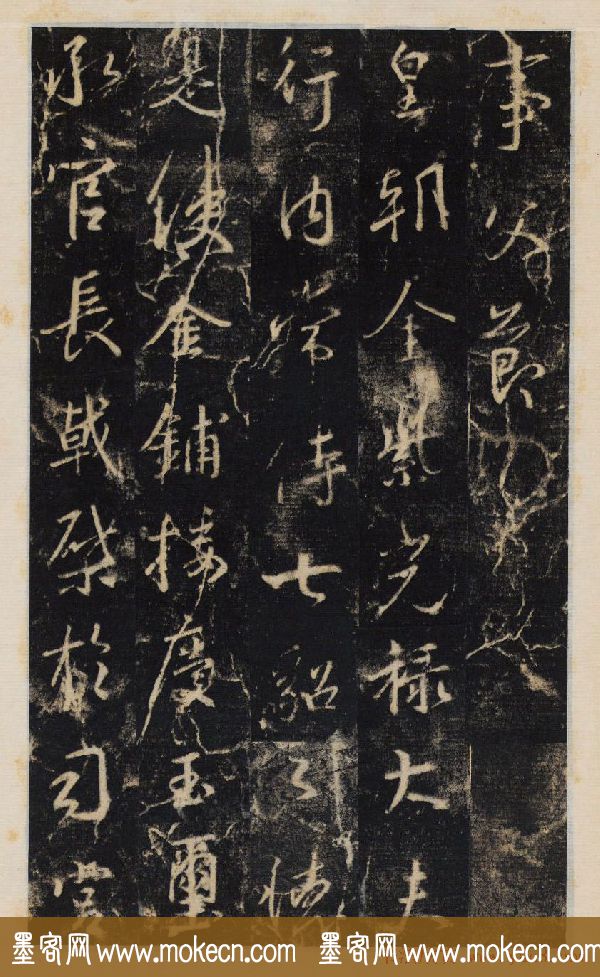 事父節
皇朝金紫光祿大夫
行内常侍七貂引
使金鋪接慶玉璽
承官長戟棨於司
墨客网 www.mokecn.com 墨客网 www.mokecn.com